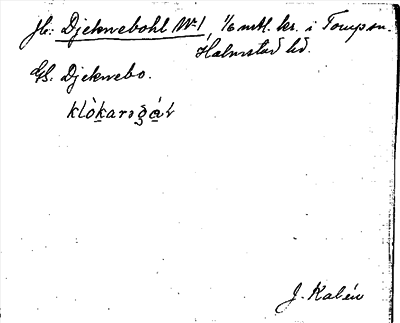 Jb: Djeknebohl No 1, 1/6 mtl. kr. i Tomp sn.
Halmstad hd.
Gs. Djeknebo.
klòkarəgáʀ
J. Kalén